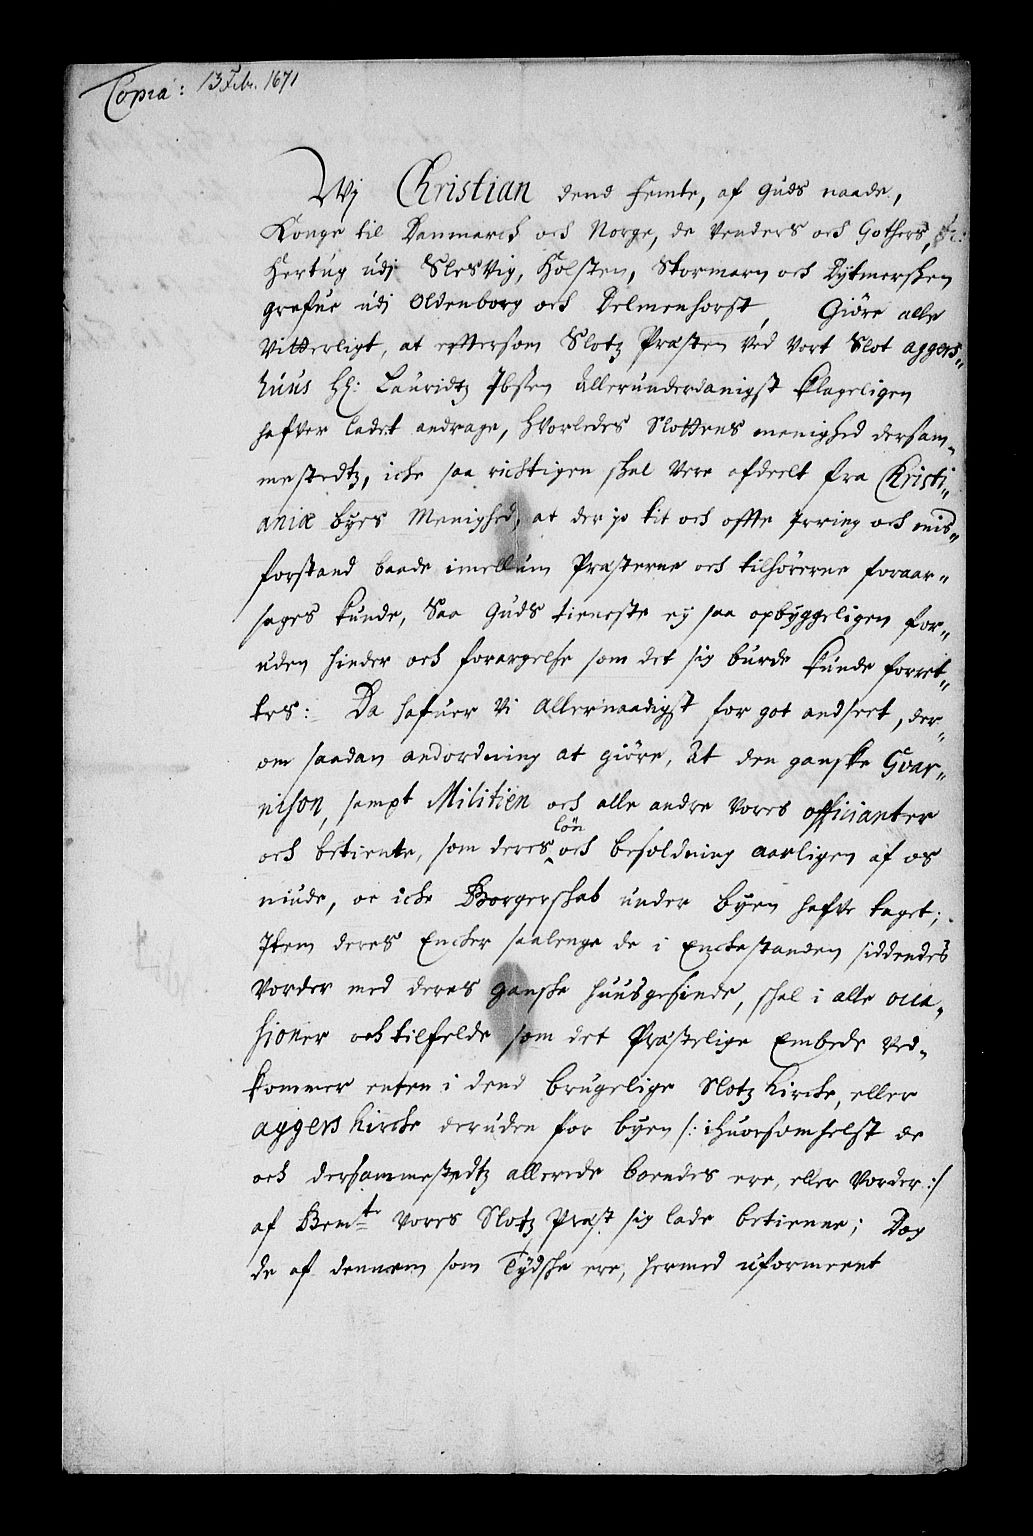 Copia: 13 Febr. 1671
Wj Christian dend Femte, af Guds naade,
Konge til Danmarck och Norge, de Venders och Gothers, &c:
Hertug udj SlesVig, Holsten, Stormarn och Dytmersken
grefue udj Oldenborg och Delmenhorst, Giöre alle
Vitterligt, at eftersom Slotz Præsten Ved Vort Slot aggers-
huus Hr: Lauridtz Ibsen Allerunderdanigst klageligen
hafver ladet andrage, hvorledes Slottens menighed dersam-
mestedtz, icke saa richtigen skal Vere afdeelt fra Christi-
aniæ byes Menighed, at der jo tit och offte Irring och mis-
forstand baade imellum Præsterne och tilhörerne foraar-
sages kunde, Saa Guds tieneste ej saa opbyggeligen for-
uden hinder och forargelse som det sig burde kunde forret-
tes: Da hafuer Vi allernaadigst for got andseet, der-
om saadan andordning at giöre, At den ganske Gvar-
nison, sampt Militien och alle andre Vores officianter
och betiente, som deres lön och besoldning aarligen af os
niude, oc icke Borgerskab under byen hafve taget;
Item deres Encker saalenge de i Enckestanden siddendes
Vorder med deres ganske huusgesinde, skal i alle occa-
sioner och tilfelde som det Præstelige Embede Ved-
kommer enten i dend brugelige Slotz Kircke, eller
aggers Kircke deruden for byen /: ihuorsomhelst de
och dersammestedtz allerede boendes ere, eller Vorder :/
af Bemte Vores Slotz Præst sig lade betienne; Dog
de af dennem som Tydske ere, hermed uformeent